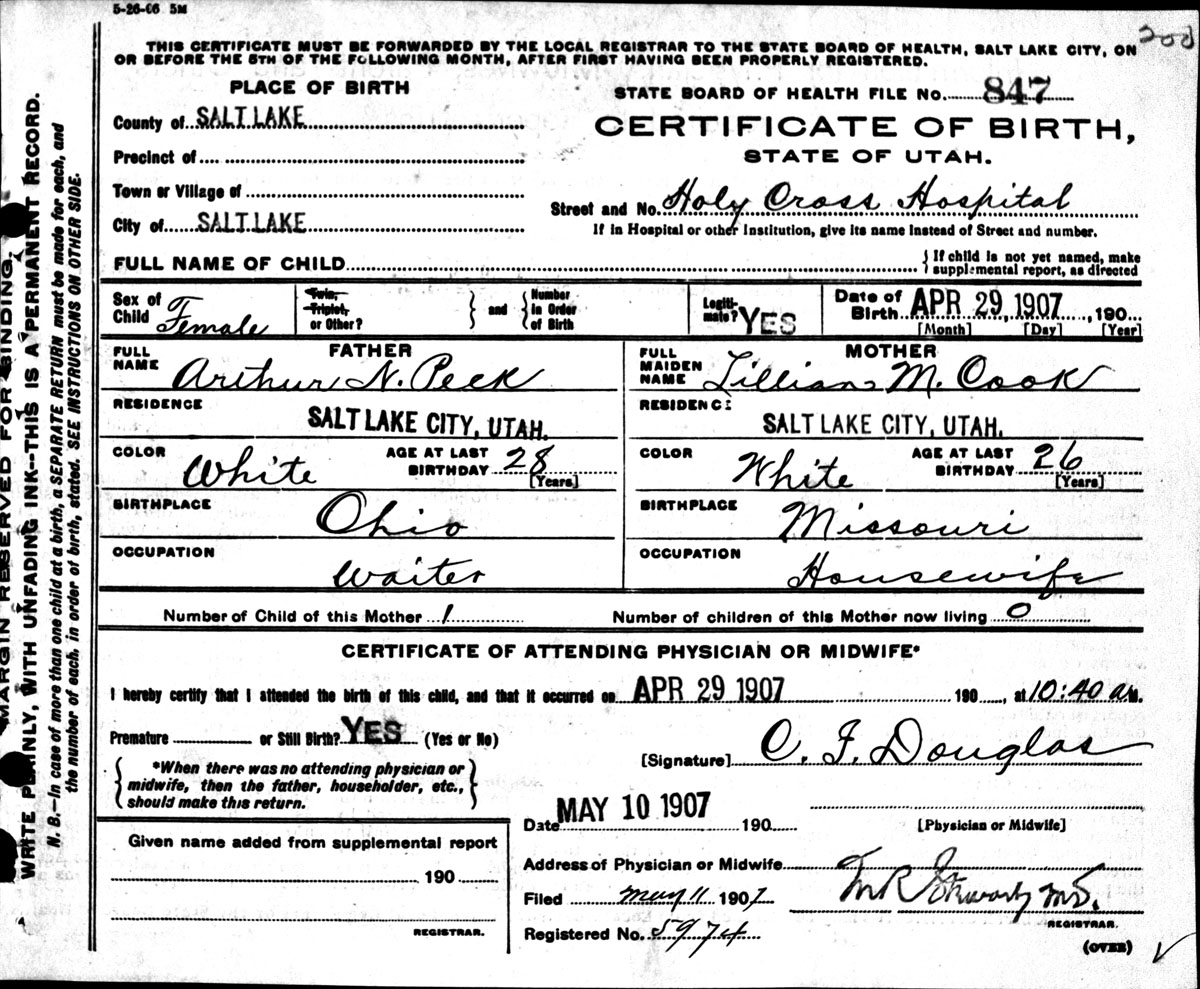 5-26-06 5M
200
THIS CERTIFICATE MUST BE FORWARDED BY THE LOCAL REGISTRAR TO THE STATE BOARD OF HEALTH, SALT LAKE CITY, ON
OR BEFORE THE 5TH OF THE FOLLOWING MONTH, AFTER FIRST HAVING BEEN PROPERLY REGISTERED.
PLACE OF BIRTH
STATE BOARD OF HEALTH FILE NO. 847
County of SALT LAKE
CERTIFICATE OF BIRTH,
Precinct of
STATE OF UTAH.
Town or Village of
Street and No. Holy Cross Hospital
City of SALT LAKE
If in Hospital or other Institution, give its name instead of Street and number.
FULL NAME OF CHILD
If child is not yet named, make
supplemental report, as directed
Sex of Child Female
Twin, Triplet, or Other?
and
Number in Order of Birth
Legitimate? YES
Date of Birth APR 29, 1907, 190
[Month] [Day] [Year]
FATHER
FULL NAME Arthur N. Peck
RESIDENCE
SALT LAKE CITY, UTAH.
COLOR White
AGE AT LAST BIRTHDAY 28
[Years]
BIRTHPLACE
Ohio
OCCUPATION
Waiter
MOTHER
FULL MAIDEN NAME Lillian M. Cook
RESIDENCE
SALT LAKE CITY, UTAH.
COLOR White
AGE AT LAST BIRTHDAY 26
[Years]
BIRTHPLACE
Missouri
OCCUPATION
Housewife
Number of Child of this Mother 1
Number of children of this Mother now living 0
CERTIFICATE OF ATTENDING PHYSICIAN OR MIDWIFE*
I hereby certify that I attended the birth of this child, and that it occurred on APR 29 1907 190 , at 10:40 a M.
Premature or Still Birth? YES (Yes or No)
[Signature] C. F. Douglas
*When there was no attending physician or
midwife, then the father, householder, etc.,
should make this return.
Date MAY 10 1907 190
[Physician or Midwife]
Given name added from supplemental report
190
REGISTRAR.
Address of Physician or Midwife
Filed May 11 1907
M.D.
REGISTRAR.
Registered No. 5974
(OVER)
MARGIN RESERVED FOR BINDING.
WRITE PLAINLY, WITH UNFADING INK--THIS IS A PERMANENT RECORD.
N. B.--In case of more than one child at a birth, a SEPARATE RETURN must be made for each, and
the number of each, in order of birth, stated. SEE INSTRUCTIONS ON OTHER SIDE.